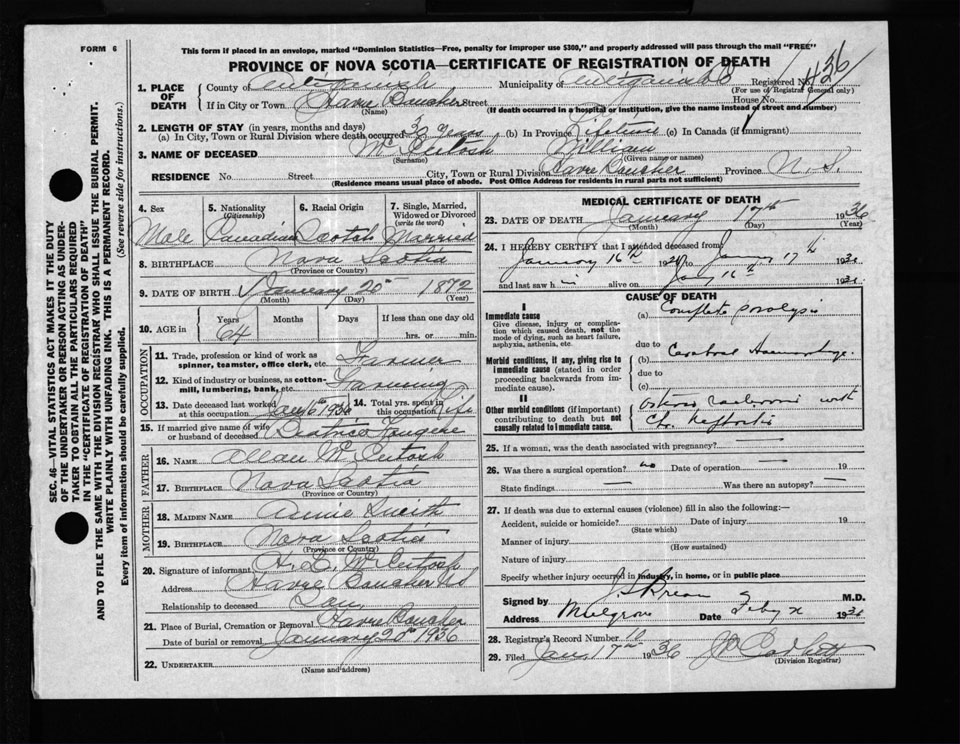 FORM 6
This form if placed in an envelope, marked "Dominion Statistics—Free, penalty for improper use $300," and properly addressed will pass through the mail "FREE"
PROVINCE OF NOVA SCOTIA—CERTIFICATE OF REGISTRATION OF DEATH
SEC. 46—VITAL STATISTICS ACT MAKES IT THE DUTY
OF THE UNDERTAKER OR PERSON ACTING AS UNDER-
TAKER TO OBTAIN ALL THE PARTICULARS REQUIRED
IN THE "CERTIFICATE OF REGISTRATION OF DEATH"
AND TO FILE THE SAME WITH THE DIVISION REGISTRAR WHO SHALL ISSUE THE BURIAL PERMIT.
WRITE PLAINLY WITH UNFADING INK. THIS IS A PERMANENT RECORD.
Every item of information should be carefully supplied. (See reverse side for instructions.)
1. PLACE OF DEATH County of Antigonish Municipality of Antigonish Co Registered No. 436
(For use of Registrar General only)
If in City or Town Havre Boucher Street House No.
(Name) (If death occurred in a hospital or institution, give the name instead of street and number)
2. LENGTH OF STAY (in years, months and days)
(a) In City, Town or Rural Division where death occurred 30 years (b) In Province Lifetime (c) In Canada (if immigrant)
3. NAME OF DECEASED McIntosh William
(Surname) (Given name or names)
RESIDENCE No. Street City, Town or Rural Division Havre Boucher Province N. S.
(Residence means usual place of abode. Post Office Address for residents in rural parts not sufficient)
4. Sex 5. Nationality (Citizenship) 6. Racial Origin 7. Single, Married, Widowed or Divorced (write the word)
Male Canadian Scotch Married
8. BIRTHPLACE Nova Scotia
(Province or Country)
9. DATE OF BIRTH January 20th 1872
(Month) (Day) (Year)
10. AGE in Years Months Days If less than one day
64 hrs. or min.
OCCUPATION
11. Trade, profession or kind of work as spinner, teamster, office clerk, etc. Farmer
12. Kind of industry or business, as cotton-mill, lumbering, bank, etc. Farming
13. Date deceased last worked at this occupation Jan 16 1936 14. Total yrs. spent in this occupation Life
15. If married give name of wife or husband of deceased Beatrice
FATHER
16. NAME Allan McIntosh
17. BIRTHPLACE Nova Scotia
(Province or Country)
MOTHER
18. MAIDEN NAME Annie
19. BIRTHPLACE Nova Scotia
(Province or Country)
20. Signature of informant McIntosh
Address Havre Boucher N.S
Relationship to deceased Son
21. Place of Burial, Cremation or Removal Havre Boucher
Date of burial or removal January 20th 1936
22. UNDERTAKER
(Name and address)
MEDICAL CERTIFICATE OF DEATH
23. DATE OF DEATH January 17th 1936
(Month) (Day) (Year)
24. I HEREBY CERTIFY that I attended deceased from
January 16th to January 17th 1936
and last saw him alive on Jany 16th 1936
CAUSE OF DEATH
I
Immediate cause (a) Complete paralysis
Give disease, injury or complica-
tion which caused death, not the
mode of dying, such as heart failure,
asphyxia, asthenia, etc. due to
Morbid conditions, if any, giving rise to (b) Cerebral Haemorrhage.
immediate cause (stated in order due to
proceeding backwards from im-
mediate cause). (c)
II
Other morbid conditions (if important) with
contributing to death but not
causally related to immediate cause. Chr.
25. If a woman, was the death associated with pregnancy? —
26. Was there a surgical operation? no Date of operation — 19
State findings — Was there an autopsy? —
27. If death was due to external causes (violence) fill in also the following:—
Accident, suicide or homicide? Date of injury 19
(State which)
Manner of injury
(How sustained)
Nature of injury
Specify whether injury occurred in industry, in home, or in public place
Signed by M.D.
Address Mulgrave Date 1936
28. Registrar's Record Number 10
29. Filed Jan. 17th 1936
(Division Registrar)